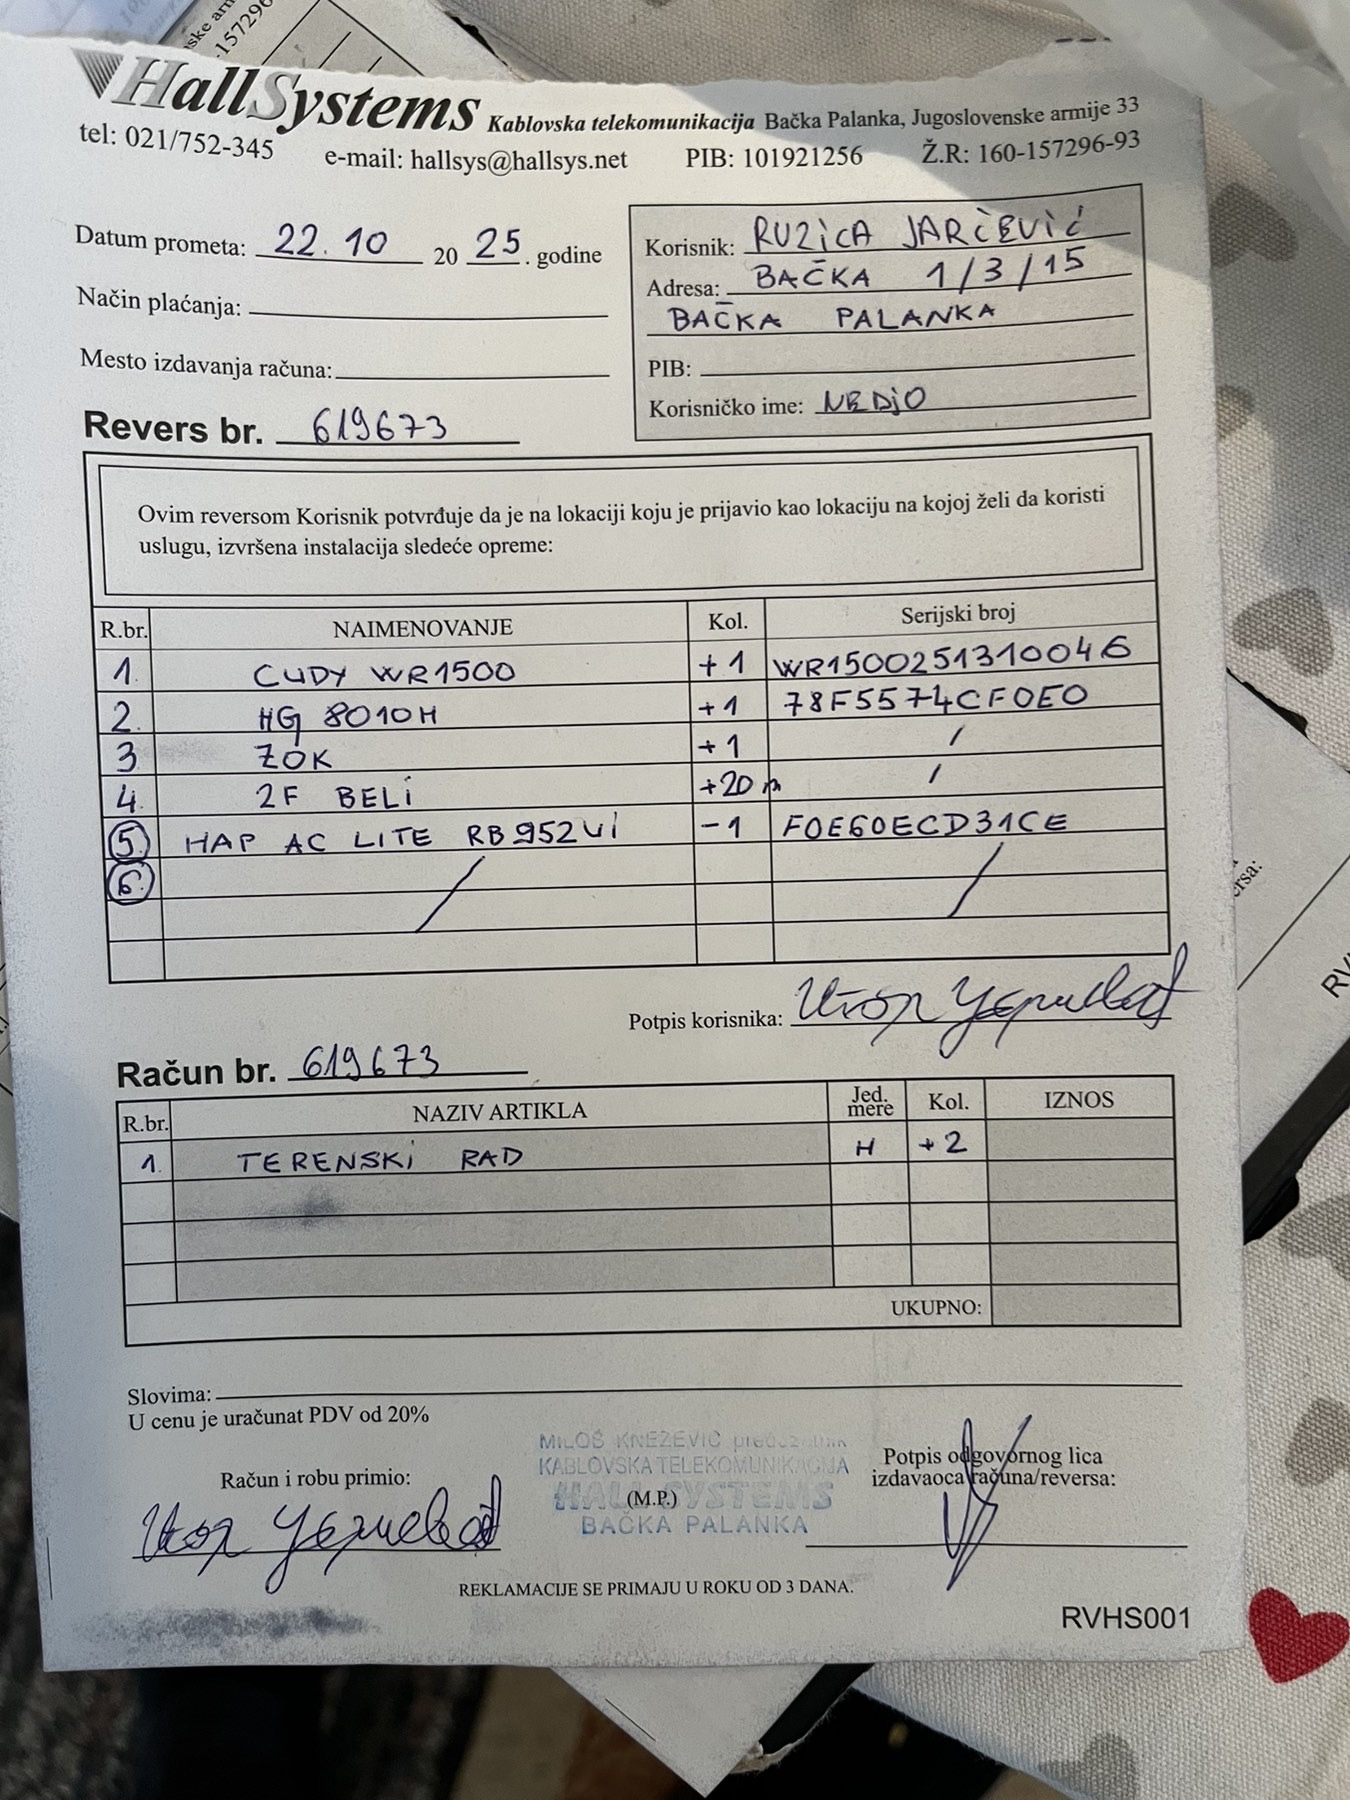 HallSystems Kablovska telekomunikacija Bačka Palanka, Jugoslovenske armije 33
tel: 021/752-345 e-mail: hallsys@hallsys.net PIB: 101921256 Ž.R: 160-157296-93
Datum prometa: 22.10 2025. godine
Način plaćanja:
Mesto izdavanja računa:
Revers br. 619673
Korisnik: RUZICA JARČEVIĆ
Adresa: BAČKA 1/3/15
BAČKA PALANKA
PIB:
Korisničko ime: NEDJO
Ovim reversom Korisnik potvrđuje da je na lokaciji koju je prijavio kao lokaciju na kojoj želi da koristi
uslugu, izvršena instalacija sledeće opreme:
R.br. NAIMENOVANJE Kol. Serijski broj
1. CUDY WR1500 +1 WR1500251310046
2. HG 8010H +1 78F5574CF0E0
3 ZOK +1 /
4. 2F BELI +20 m /
5. HAP AC LITE RB952Ui -1 F0E60ECD31CE
6. / /
Potpis korisnika:
Račun br. 619673
R.br. NAZIV ARTIKLA Jed. mere Kol. IZNOS
1. TERENSKI RAD H +2
UKUPNO:
Slovima:
U cenu je uračunat PDV od 20%
Račun i robu primio:
MILOŠ KNEŽEVIĆ preduzetnik
KABLOVSKA TELEKOMUNIKACIJA
HALL SYSTEMS
(M.P.)
BAČKA PALANKA
Potpis odgovornog lica
izdavaoca računa/reversa:
REKLAMACIJE SE PRIMAJU U ROKU OD 3 DANA.
RVHS001